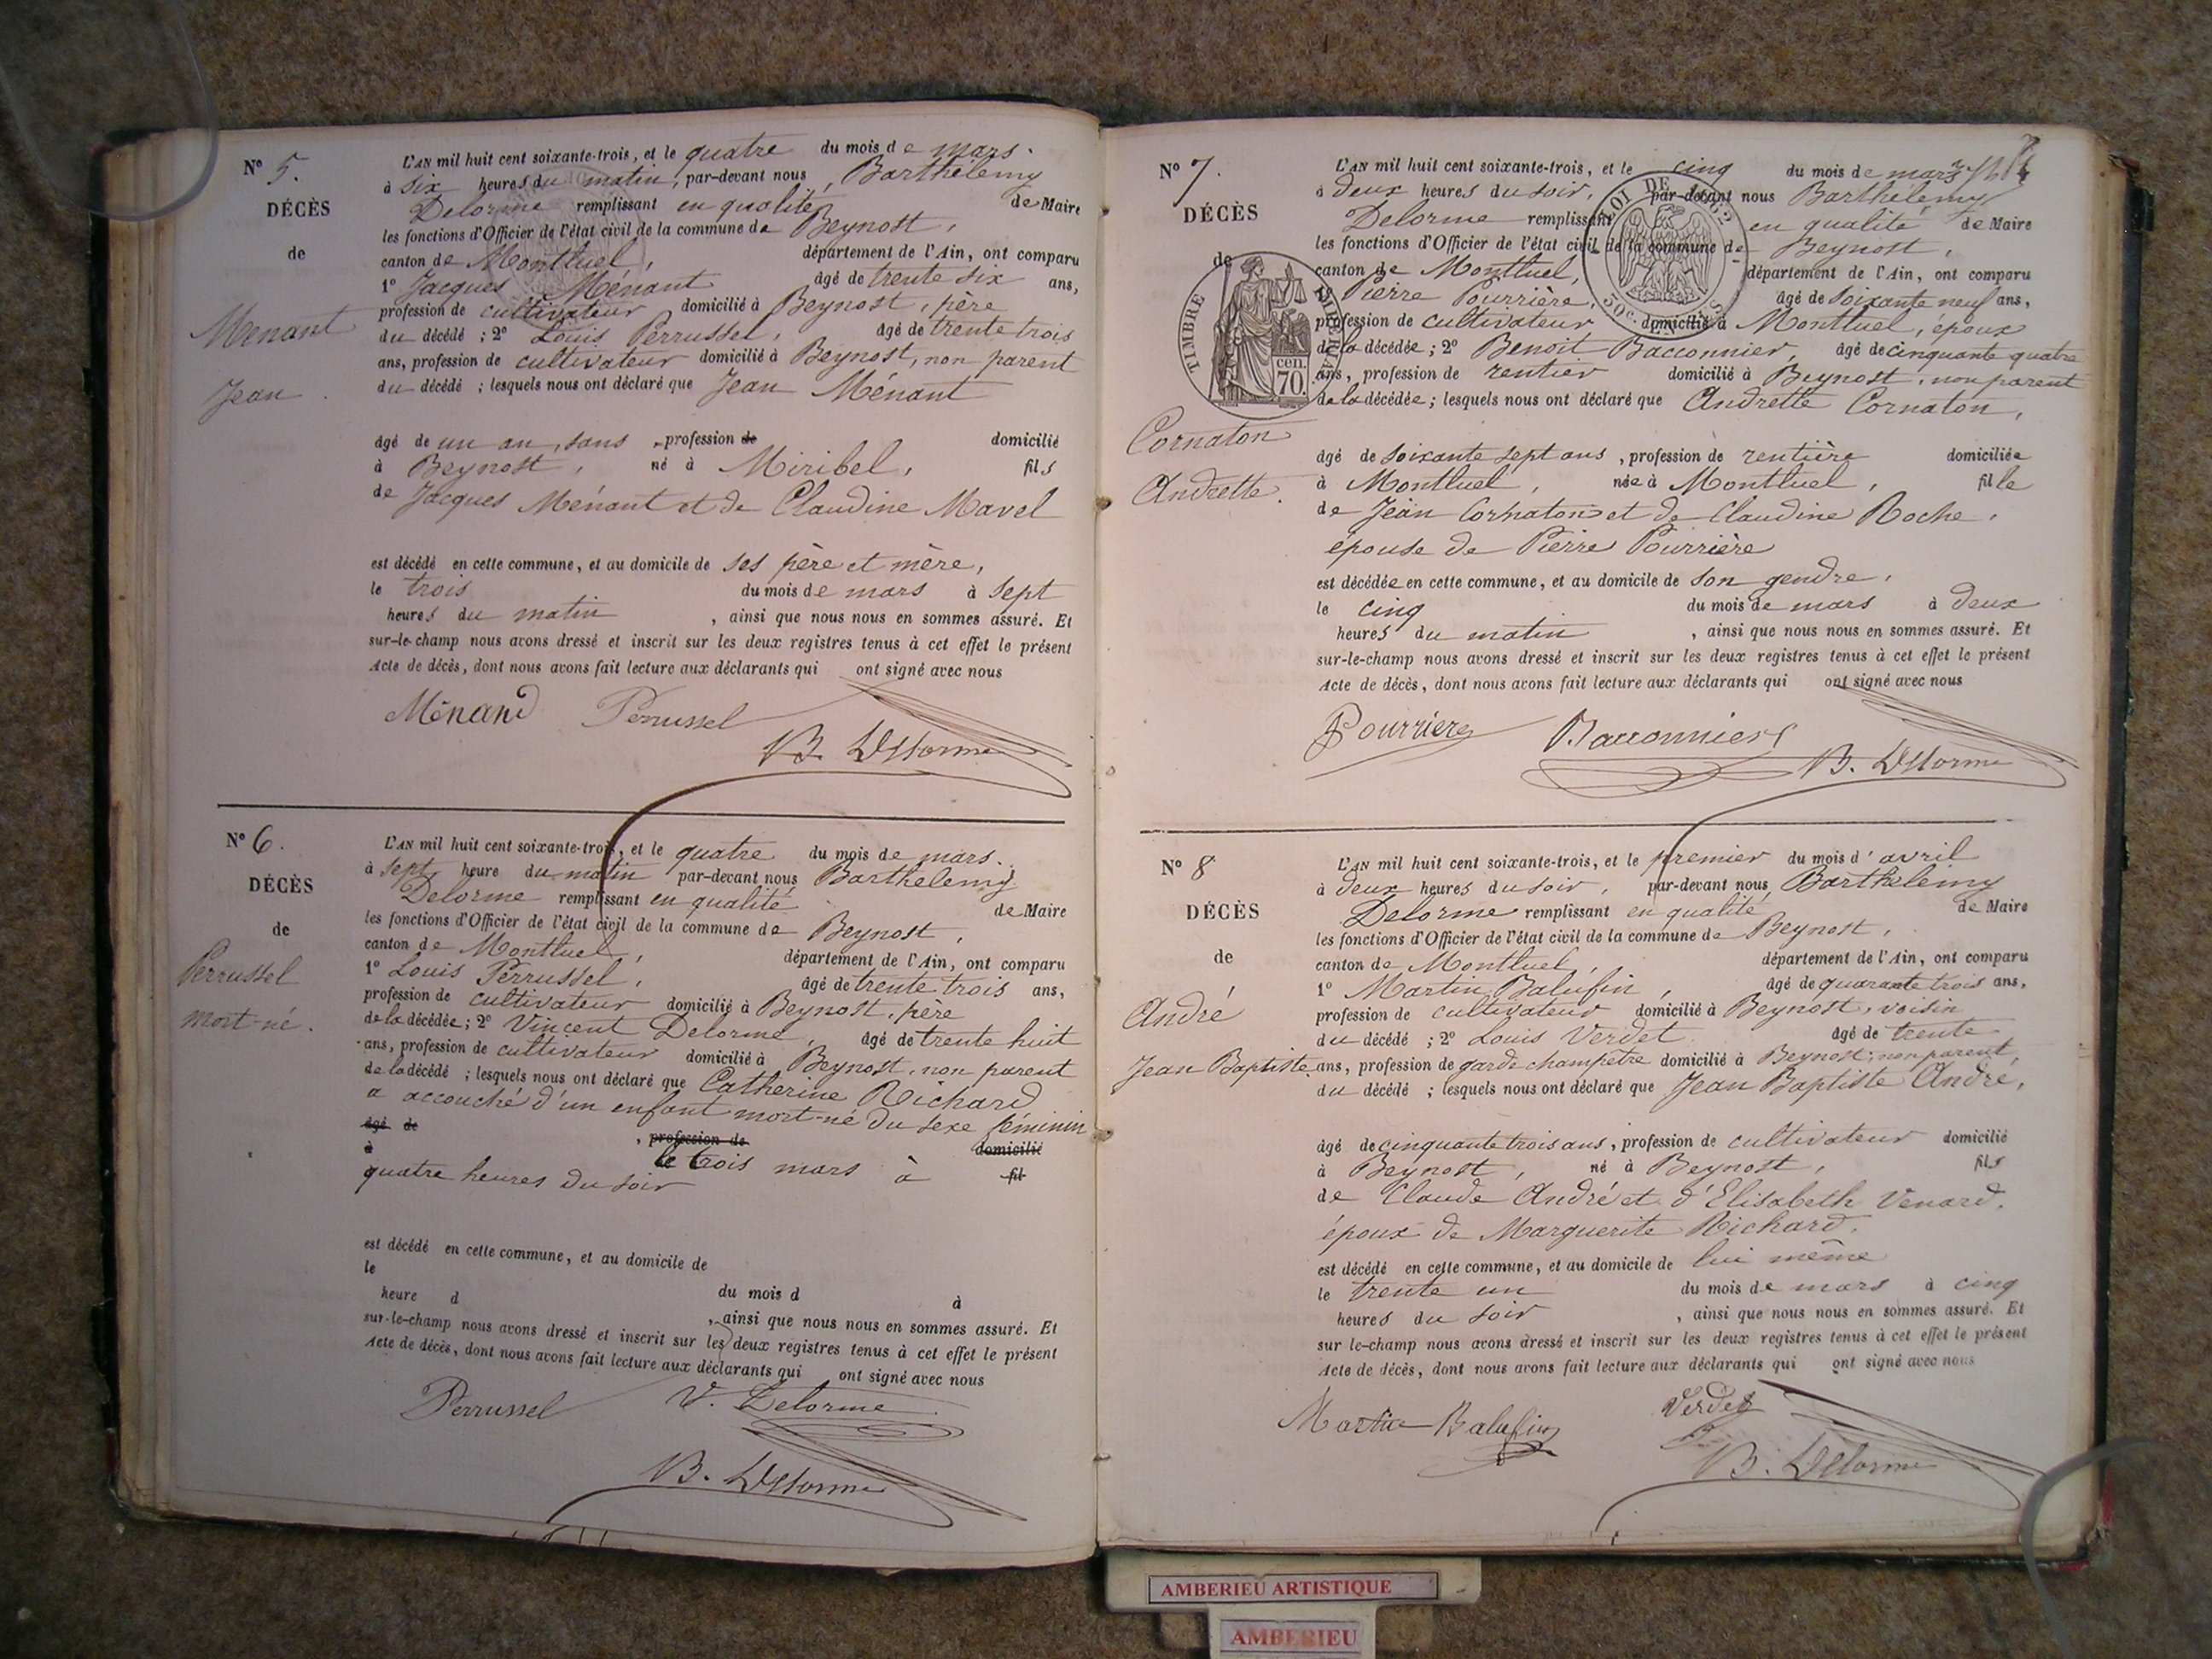 N° 5.
DÉCÈS
de
Menant
Jean
L'AN mil huit cent soixante-trois, et le quatre du mois de mars.
à six heures du matin, par-devant nous, Barthélemy
Delorme remplissant en qualité de Maire
les fonctions d'Officier de l'état civil de la commune de Beynost,
canton de Montluel, département de l'Ain, ont comparu
1° Jacques Ménant âgé de trente six ans,
profession de cultivateur domicilié à Beynost, père
du décédé ; 2° Louis Perrussel, âgé de trente trois
ans, profession de cultivateur domicilié à Beynost, non parent
du décédé ; lesquels nous ont déclaré que Jean Ménant
âgé de un an, sans profession de domicilié
à Beynost, né à Miribel, fils
de Jacques Ménant et de Claudine Mavel
est décédé en cette commune, et au domicile de ses père et mère,
le trois du mois de mars à sept
heures du matin, ainsi que nous nous en sommes assuré. Et
sur-le-champ nous avons dressé et inscrit sur les deux registres tenus à cet effet le présent
Acte de décès, dont nous avons fait lecture aux déclarants qui ont signé avec nous
Ménand Perrussel
B. Delorme
N° 6.
DÉCÈS
de
Perrussel
mort-né.
L'AN mil huit cent soixante-trois, et le quatre du mois de mars.
à sept heure du matin par-devant nous Barthélemy
Delorme remplissant en qualité de Maire
les fonctions d'Officier de l'état civil de la commune de Beynost,
canton de Montluel, département de l'Ain, ont comparu
1° Louis Perrussel, âgé de trente trois ans,
profession de cultivateur domicilié à Beynost, père
de la décédée ; 2° Vincent Delorme, âgé de trente huit
ans, profession de cultivateur domicilié à Beynost, non parent
de la décédé ; lesquels nous ont déclaré que Catherine Richard
a accouché d'un enfant mort-né du sexe féminin
âgé de , profession de domicilié
à le trois mars à fil
quatre heures du soir
est décédé en cette commune, et au domicile de
le du mois d à
heure d , ainsi que nous nous en sommes assuré. Et
sur-le-champ nous avons dressé et inscrit sur les deux registres tenus à cet effet le présent
Acte de décès, dont nous avons fait lecture aux déclarants qui ont signé avec nous
Perrussel V. Delorme
B. Delorme
N° 7.
DÉCÈS
de
TIMBRE IMPÉRIAL
70 cen.
LOI DE 1862
50 c. EN SUS
Cornaton
Andrette.
L'AN mil huit cent soixante-trois, et le cinq du mois de mars
à deux heures du soir, par-devant nous Barthélemy
Delorme remplissant en qualité de Maire
les fonctions d'Officier de l'état civil de la commune de Beynost,
canton de Montluel, département de l'Ain, ont comparu
Pierre Pourrière, âgé de soixante neuf ans,
profession de cultivateur domicilié à Montluel, époux
de la décédée ; 2° Benoit Bacconnier, âgé de cinquante quatre
ans, profession de rentier domicilié à Beynost, non parent
de la décédée ; lesquels nous ont déclaré que Andrette Cornaton,
âgé de soixante sept ans, profession de rentière domiciliée
à Montluel, née à Montluel, fille
de Jean Cornaton et de Claudine Roche,
épouse de Pierre Pourrière
est décédée en cette commune, et au domicile de son gendre,
le cinq du mois de mars à deux
heures du matin, ainsi que nous nous en sommes assuré. Et
sur-le-champ nous avons dressé et inscrit sur les deux registres tenus à cet effet le présent
Acte de décès, dont nous avons fait lecture aux déclarants qui ont signé avec nous
Pourrière Bacconnier
B. Delorme
N° 8
DÉCÈS
de
André
Jean Baptiste.
L'AN mil huit cent soixante-trois, et le premier du mois d'avril
à deux heures du soir, par-devant nous Barthélemy
Delorme remplissant en qualité de Maire
les fonctions d'Officier de l'état civil de la commune de Beynost,
canton de Montluel, département de l'Ain, ont comparu
1° Martin Balufin, âgé de quarante trois ans,
profession de cultivateur domicilié à Beynost, voisin
du décédé ; 2° Louis Verdet âgé de trente
ans, profession de garde champêtre domicilié à Beynost, non parent,
du décédé ; lesquels nous ont déclaré que Jean Baptiste André,
âgé de cinquante trois ans, profession de cultivateur domicilié
à Beynost, né à Beynost, fils
de Claude André et d'Elisabeth Venard,
époux de Marguerite Richard,
est décédé en cette commune, et au domicile de lui même
le trente un du mois de mars à cinq
heures du soir, ainsi que nous nous en sommes assuré. Et
sur-le-champ nous avons dressé et inscrit sur les deux registres tenus à cet effet le présent
Acte de décès, dont nous avons fait lecture aux déclarants qui ont signé avec nous
Martin Balufin Verdet
B. Delorme
AMBERIEU ARTISTIQUE
AMBERIEU